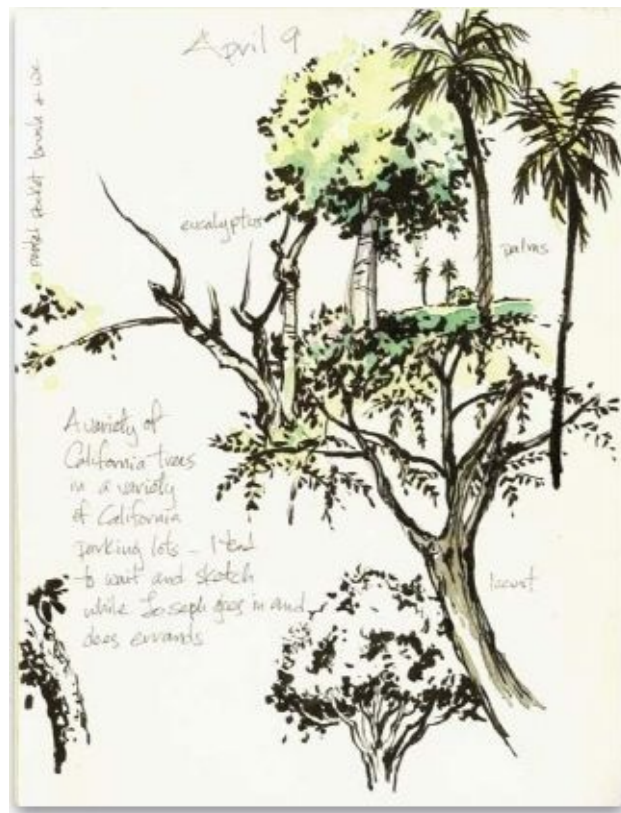 April 9
pocket brush + wc
eucalyptus
palms
A variety of
California trees
in a variety
of California
parking lots – I tend
to wait and sketch
while Joseph goes in and
does errands
locust